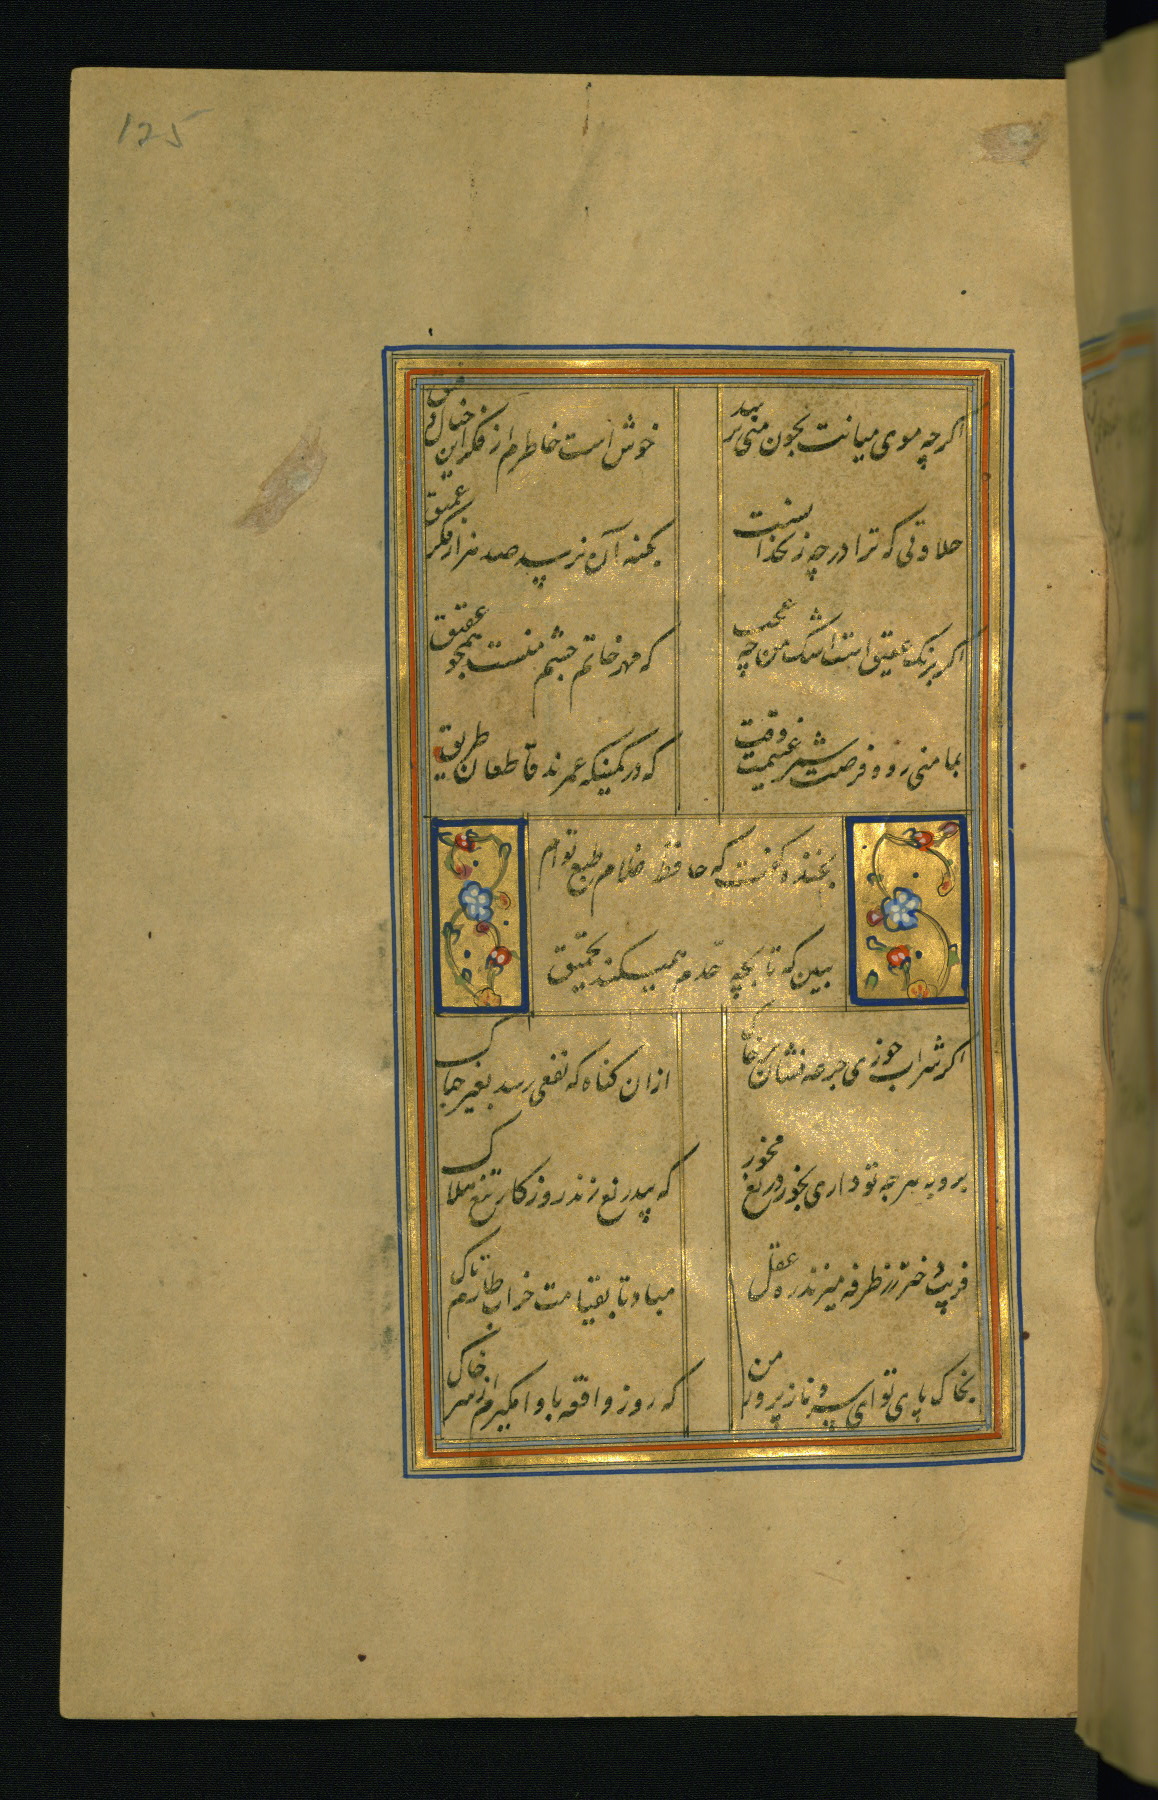 125
اکرچه موی میانت بچون منی نرسد
خوش است خاطرم از فکر این خیال دقیق
حلاوتی که ترا در چه زنخدانست
بکنه آن نرسد صد هزار فکر عمیق
اکر برنک عقیق است اشک من چه عجب
که مهر خاتم چشم منست همچو عقیق
بمامنی رو و فرصت شمر غنیمت وقت
که در کمینکه عمرند قاطعان طریق
بخنده کفت که حافظ غلام طبع توام
ببین که تا بچه حدم همیکند تحمیق
اکر شراب خوری جرعه فشان بر خاک
ازان کناه که نفعی رسد بغیر چه باک
برو به هرچه تو داری بخور دریغ مخور
که بیدریغ زند روزکار تیغ هلاک
فریب دختر رز طرفه میزند ره عقل
مباد تا بقیامت خراب طارم تاک
بخاک پای تو ای سرو ناز پرور من
که روز واقعه پا وا مکیرم از سر خاک